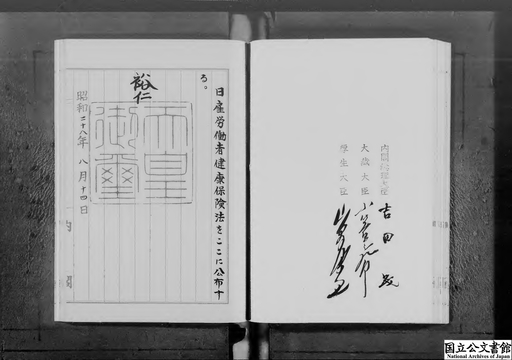 日雇労働者健康保険法をここに公布す
る。
裕仁
天皇
御璽
昭和二十八年八月十四日
内閣総理大臣 吉田茂
大蔵大臣
厚生大臣
内閣
国立公文書館
National Archives of Japan